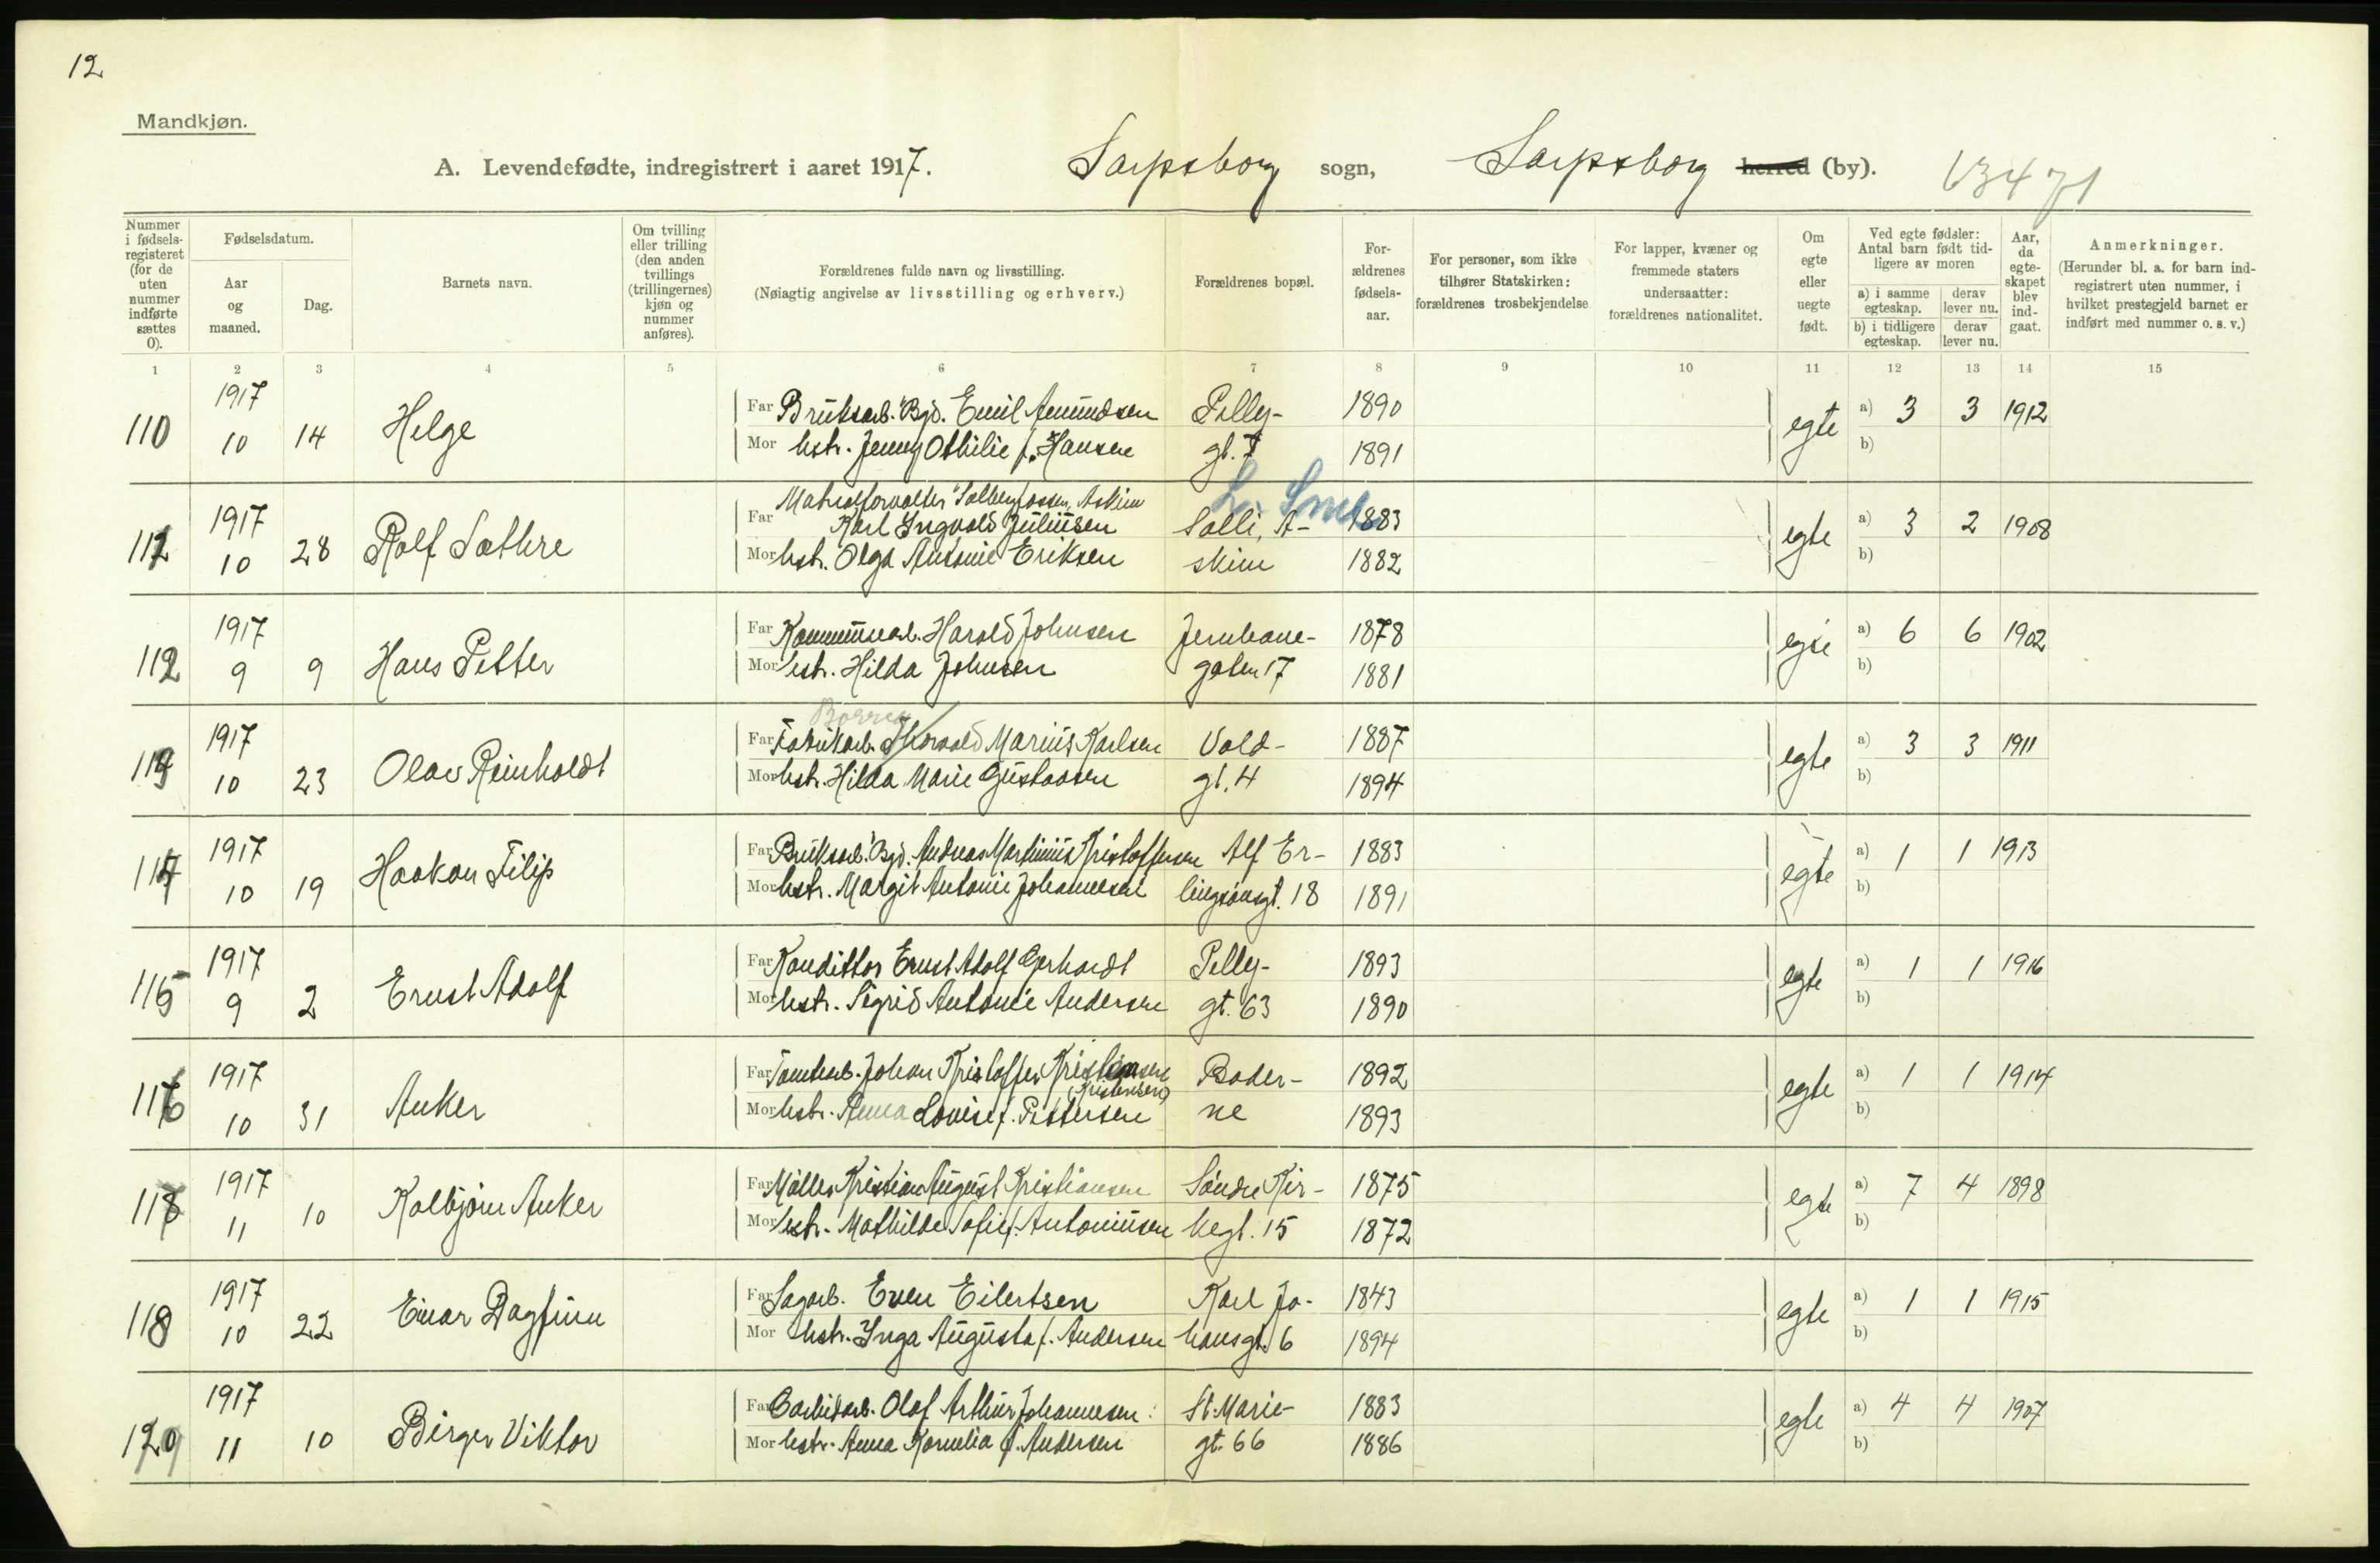 12
Mandkjøn.
A. Levendefødte, indregistrert i aaret 1917. Sarpsborg sogn, Sarpsborg herred (by).
Nummer i fødsels-registeret (for de uten nummer indførte sættes 0).
Fødselsdatum.
Aar og maaned.
Dag.
Barnets navn.
Om tvilling eller trilling (den anden tvillings (trillingernes) kjøn og nummer anføres).
Forældrenes fulde navn og livsstilling.
(Nøiagtig angivelse av livsstilling og erhverv.)
Forældrenes bopæl.
For-ældrenes fødsels-aar.
For personer, som ikke tilhører Statskirken: forældrenes trosbekjendelse
For lapper, kvæner og fremmede staters undersaatter: forældrenes nationalitet.
Om egte eller uegte født.
Ved egte fødsler: Antal barn født tid-ligere av moren
a) i samme egteskap. derav lever nu.
b) i tidligere egteskap. derav lever nu.
Aar, da egte-skapet blev ind-gaat.
Anmerkninger.
(Herunder bl. a. for barn ind-registrert uten nummer, i hvilket prestegjeld barnet er indført med nummer o. s. v.)
1 2 3 4 5 6 7 8 9 10 11 12 13 14 15
1917 Far Bruksarb. Bgd. Emil Amundsen Pelly- 1890 a) 3 3 1912
110 10 14 Helge Mor hstr. Jenny Othilie f. Hansen gt. 7 1891 egte b)
Askim
1917 Far Karl Ingvald Juliusen Solli, A- 1883 a) 3 2 1908
10 28 Rolf Sæthre Mor hstr. Olga Antonie Eriksen skim 1882 egte b)
1917 Far Kommunearb. Harald Johnsen Jernbane- 1878 a) 6 6 1902
112 9 9 Hans Petter Mor hstr. Hilda Johnsen gaten 17 1881 egte b)
Borre
1917 Far Fabrikarb. Thorvald Marius Karlsen Vold- 1887 a) 3 3 1911
10 23 Olav Reinholdt Mor hstr. Hilda Marie Gustavsen gt. 4 1894 egte b)
1917 Far Bruksarb. Bgd. Andreas Martinius Kristoffersen Alf Er- 1883 a) 1 1 1913
10 19 Haakon Filip Mor hstr. Margit Antonie Johannesen lingsønsgt. 18 1891 egte b)
1917 Far Konditor Ernst Adolf Gerhardt Pelly- 1893 a) 1 1 1916
115 9 2 Ernst Adolf Mor hstr. Sigrid Antonie Andersen gt. 63 1890 egte b)
1917 Far Tomtearb. Johan Kristoffer Kristiansen Boder- 1892 a) 1 1 1914
(Kristensen)
116 10 31 Anker Mor hstr. Anna Lovise f. Pettersen ne 1893 egte b)
1917 Far Møller Kristian August Kristiansen Søndre Kir- 1875 a) 7 4 1898
11 10 Kolbjørn Anker Mor hstr. Mathilde Sofie f. Antoniusen kegt. 15 1872 egte b)
1917 Far Sagarb. Even Eilertsen Karl Jo- 1843 a) 1 1 1915
118 10 22 Einar Dagfinn Mor hstr. Inga Augusta f. Andersen hansgt. 6 1894 egte b)
1917 Far Carbidarb. Olaf Arthur Johannesen St. Marie- 1883 a) 4 4 1907
11 10 Birger Viktor Mor hstr. Anna Kornelia f. Andersen gt. 66 1886 egte b)